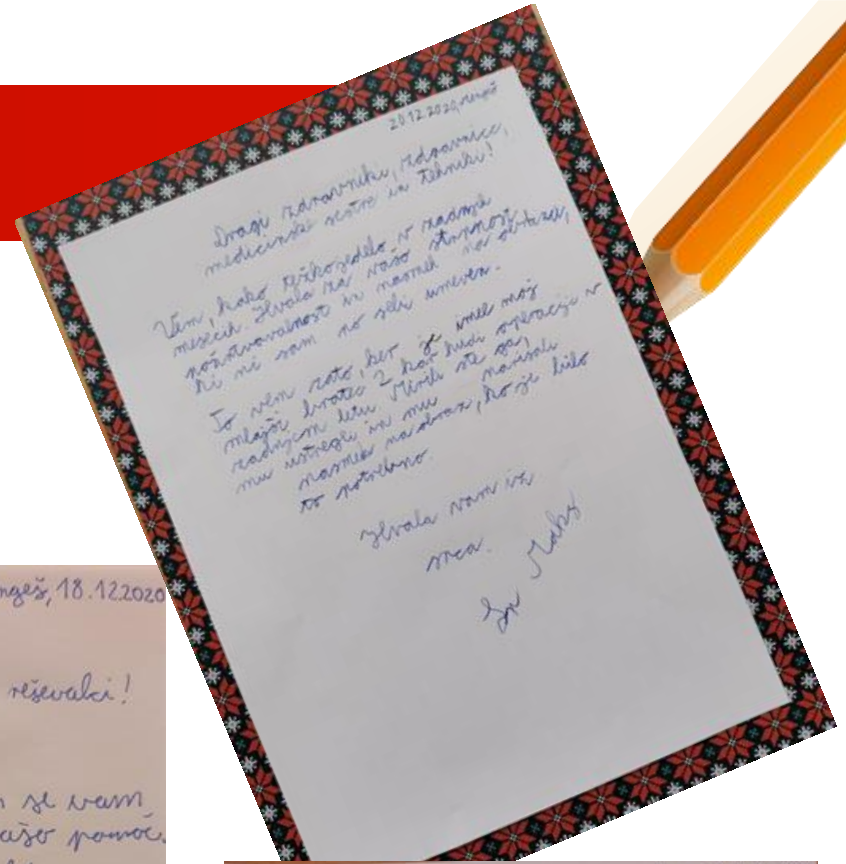 20.12.2020, Mengeš
Dragi zdravniki, zdravnice,
medicinske sestre in tehniki!
Vem, kako težko je delo v zadnjih
mesecih. Hvala za vašo strpnost,
požrtvovalnost in nasmeh na obrazu,
ki ni sam po sebi umeven.
To vem zato, ker je imel moj
mlajši bratec 2 kar hudi operaciji v
zadnjem letu. Mirili ste ga,
mu ustregli in mu narisali
nasmeh na obraz, ko je bilo
to potrebno.
Hvala vam iz
srca.
Lp Maks
ngeš, 18.12.2020
reševalci!
se vam
pomoč.